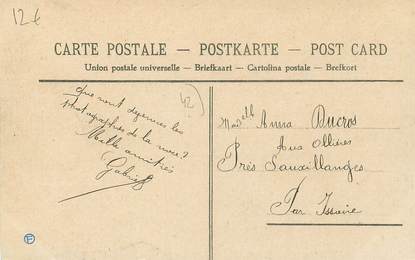 12€
CARTE POSTALE — POSTKARTE — POST CARD
Union postale universelle — Briefkaart — Cartolina postale — Brefkort
que sont devenues les
photographies de la noce?
Mille amitiés
42
Mad^elle Anna Ducros
Aux Ollières
Près Sauxillanges
Par Issoire